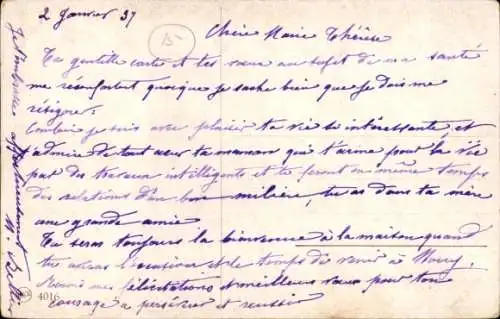 2 Janvier 37
15
Chère Marie Thérèse
Ta gentille carte et tes vœux au sujet de ma santé
me réconfortent quoique je sache bien que je dois me
résigner:
je suis avec plaisir ta vie si intéressante, et
admire de tout cœur ta maman qui t'arme pour la vie
par des travaux intelligents et te feront en même temps
des relations d'un bon milieu, tu as dans ta mère
une grande amie
Tu seras toujours la bienvenue à la maison quand
tu auras l'occasion et le temps de venir à
mes félicitations et meilleurs vœux pour ton
courage à persévérer et réussir
Je t'embrasse affectueusement
4016